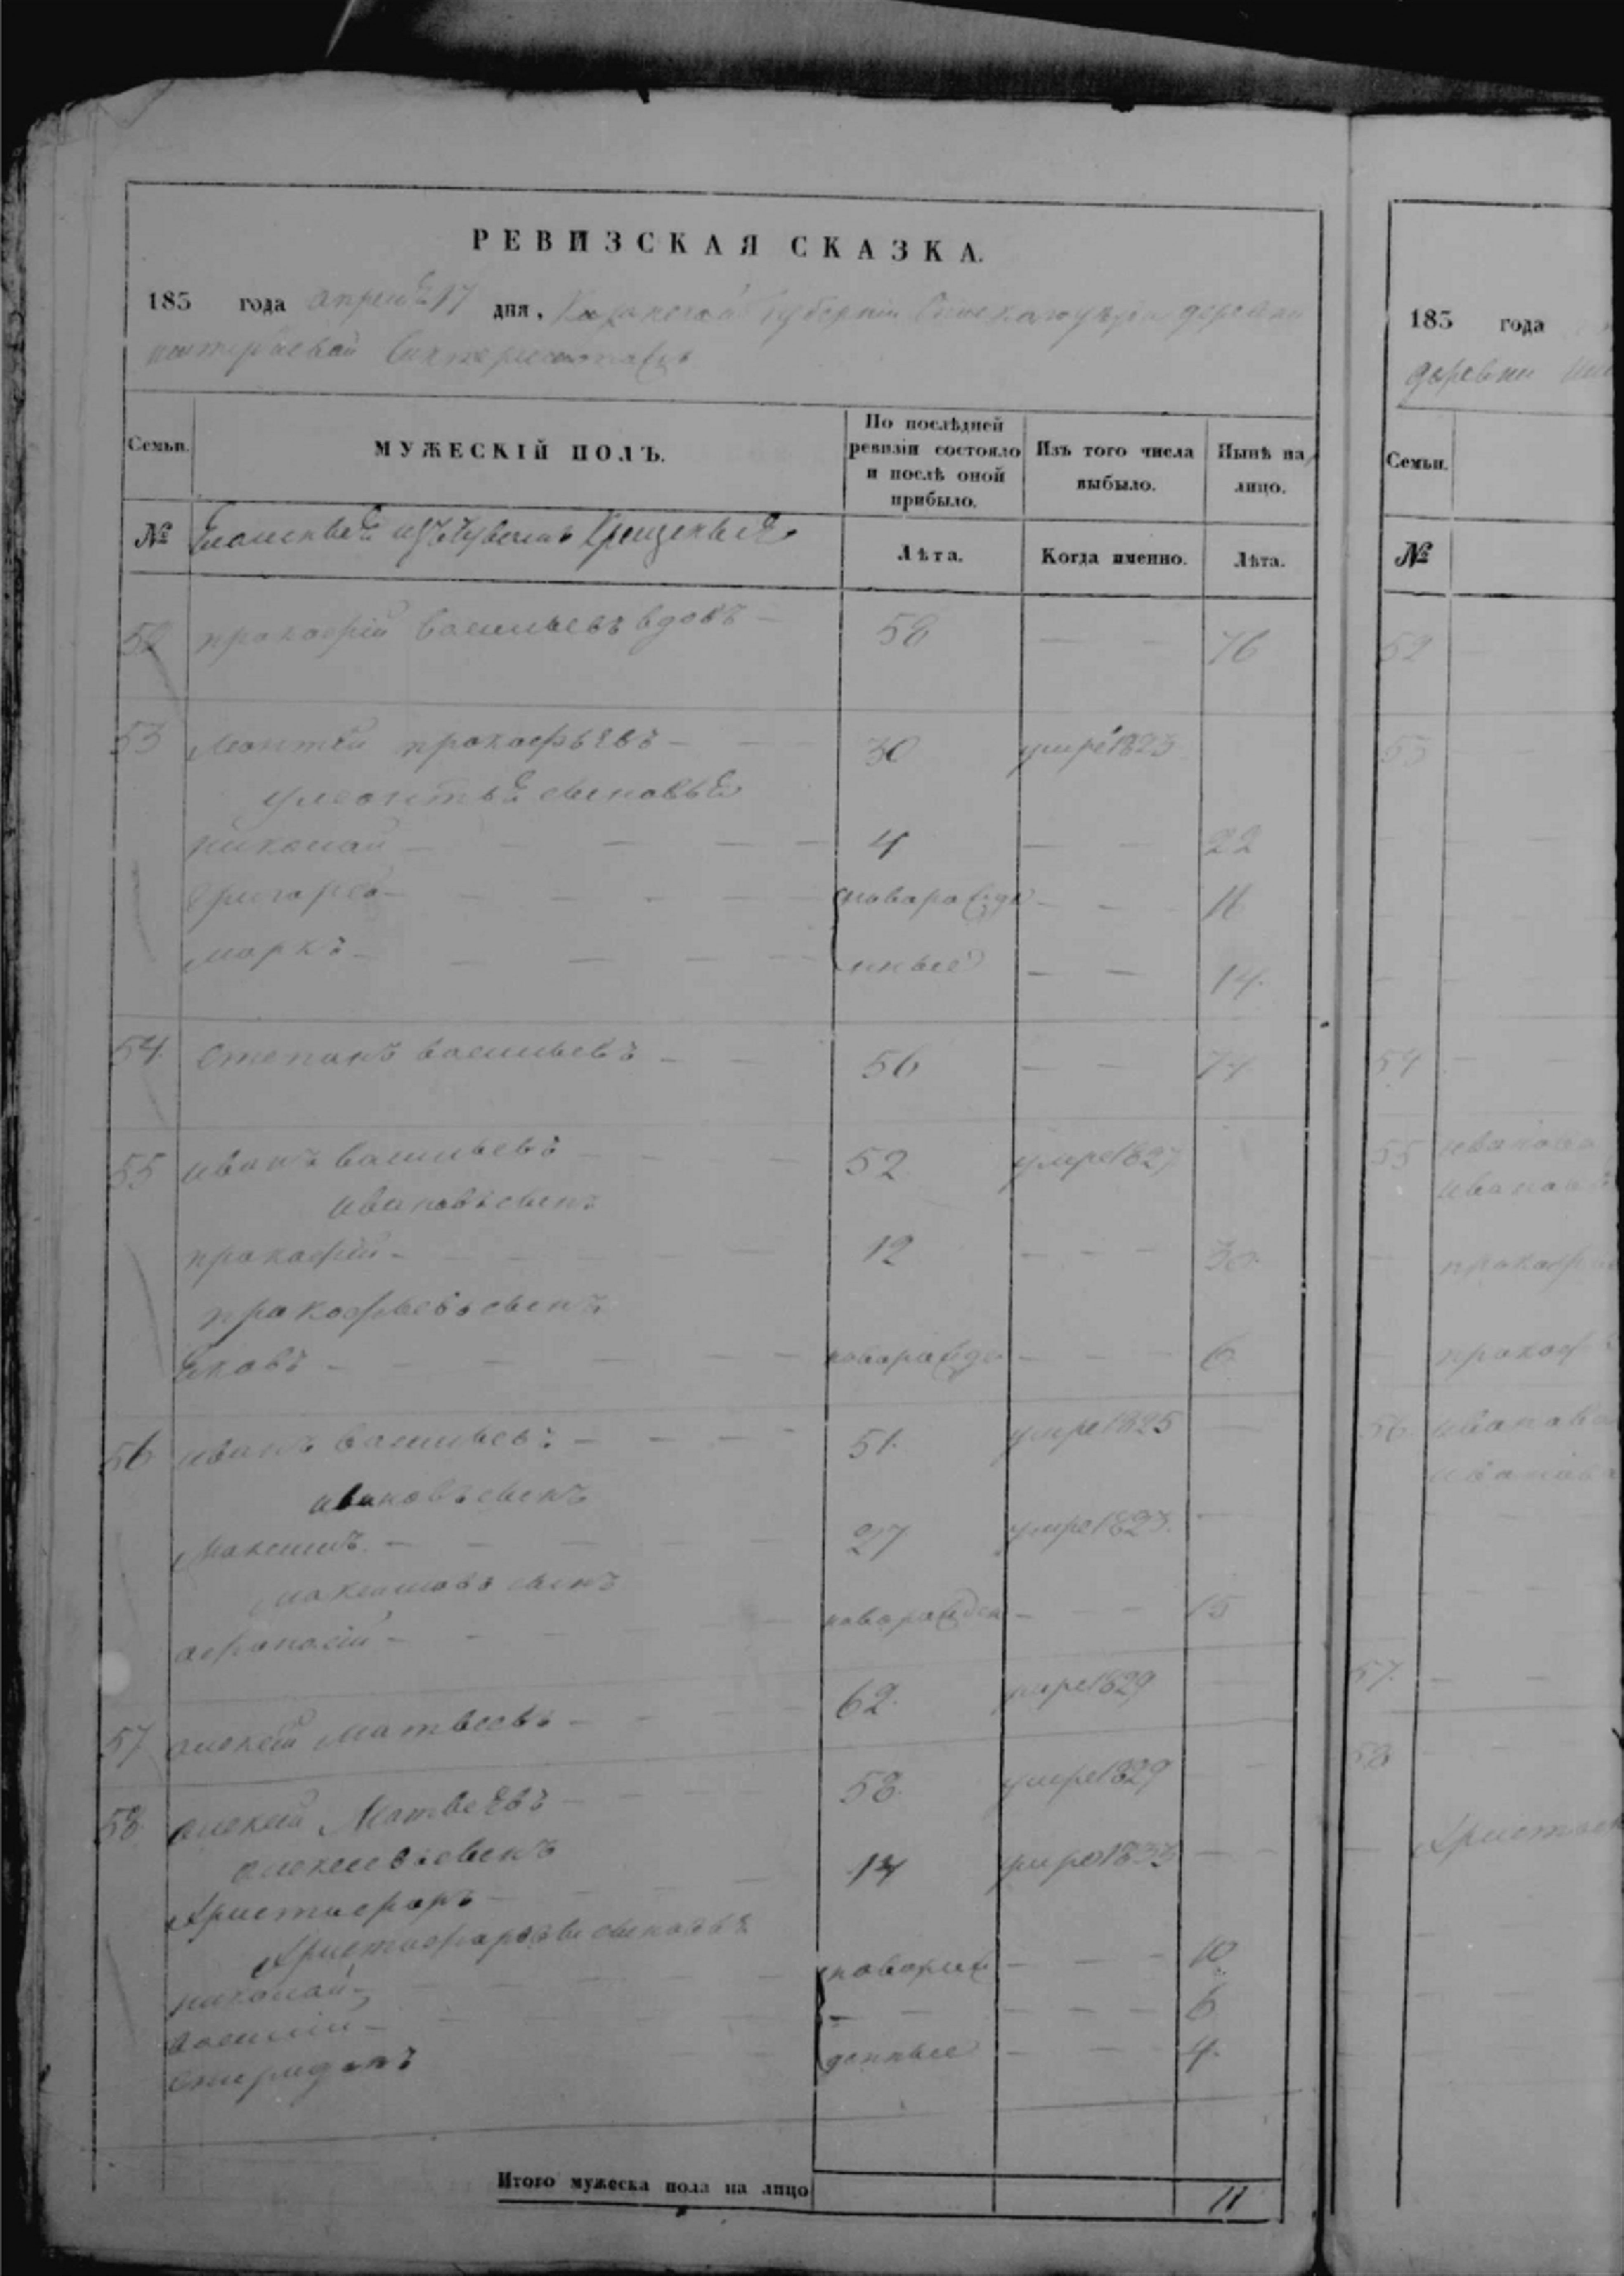 РЕВИЗСКАЯ СКАЗКА.
185 года апреля 17 дня, Казанской Губернии Спаскаго уезда деревни
Семьи. МУЖЕСКІЙ ПОЛЪ. По послѣдней ревизіи состояло и послѣ оной прибыло. Изъ того числа выбыло. Нынѣ на лицо.
№ изъ Чувашъ Крещеныя Лѣта. Когда именно. Лѣта.
52 прокофій васильевъ вдовъ — 58 — — 76
53 леонтей прокофьевъ — 30 умре 1823
у леонтья сыновья
николай — 4 — — 22
григорей — новорожде — — 11
маркъ — нные — — 14.
54. степанъ васильевъ — 56 — — 74
55 иванъ васильевъ — 52 умре 1827
ивановъ сынъ
прокофій — 12 — — 30.
прокофьевъ сынъ
яковъ — новорожде — — 6
56 иванъ васильевъ — 51. умре 1825 —
ивановъ сынъ
максимъ. — 27 умре 1823. —
максимовъ сынъ
афонасій — новорожден — — 15
57 алексей матвеевъ — 62. умре 1829 —
58. алексей Матвеевъ — 58. умре 1829 —
алексеевъ сынъ
христофоръ — 14 умре 1833 —
христофоровы сыновья
николай — новорож — — 10
василій — — — — 6
спиридонъ денные — — 4.
Итого мужеска пола на лицо 11
183 года
деревни
Семьи.
№
52
53
54
55 иванова
прокоф
прокоф
56 иванова
57.
58
христоф